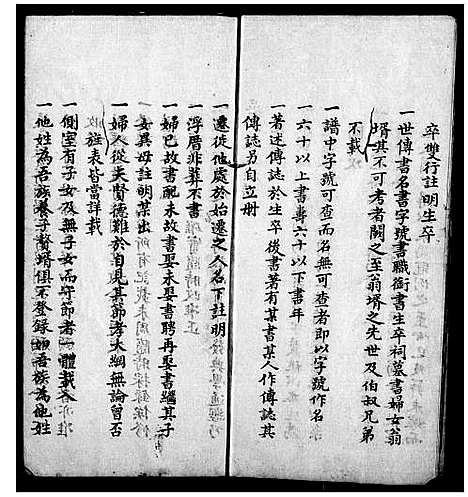 卒雙行註明生卒
一世傳書名書字號書職銜書生卒祠墓書婦女翁
壻其不可考者闕之至翁壻之先世及伯叔兄弟
不載
一譜中字號可查而名無可查者即以字號作名
一六十以上書壽六十以下書年
一著述傳誌於生卒後書著有某書某人作傳誌其
傳誌另自立册
一遷徙他處於始遷之人名下註明
一浮厝非葬不書
一婦已故書配未故書娶未娶書聘再娶書繼其子
女異母註明某出
一婦人從夫賢德難於自見其節孝大綱無論曾否
旌表皆當詳載
一側室有子女及無子女而守節者一體載
一他姓為吾族養子贅壻俱不登錄如吾族為他姓